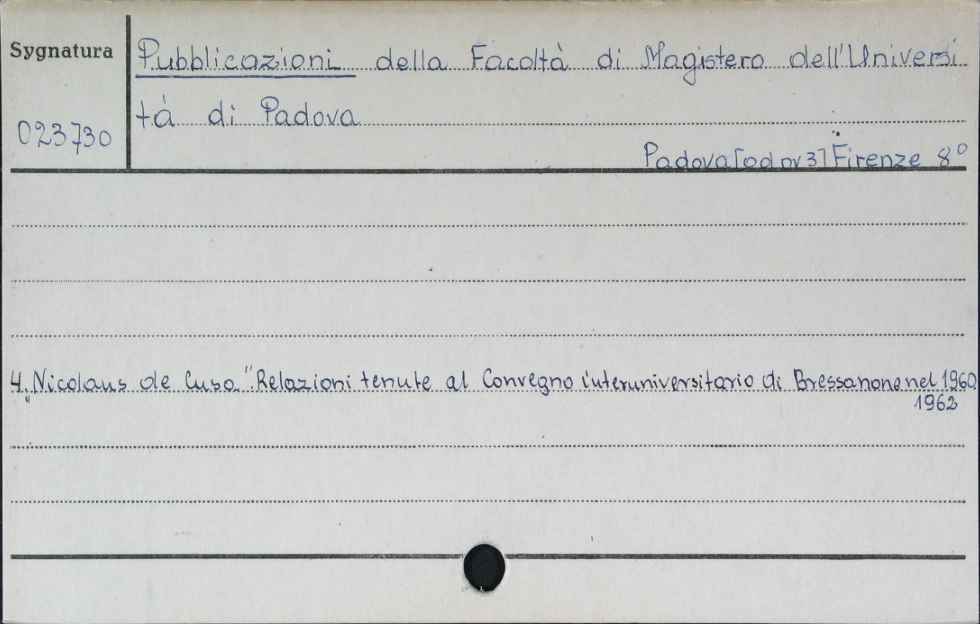 Sygnatura
Pubblicazioni della Facoltà di Magistero dell'Universi
tà di Padova
023730
Padova [od nr 3] Firenze 8°
4. "Nicolaus de Cusa." Relazioni tenute al Convegno interuniversitario di Bressanone nel 1960
1962